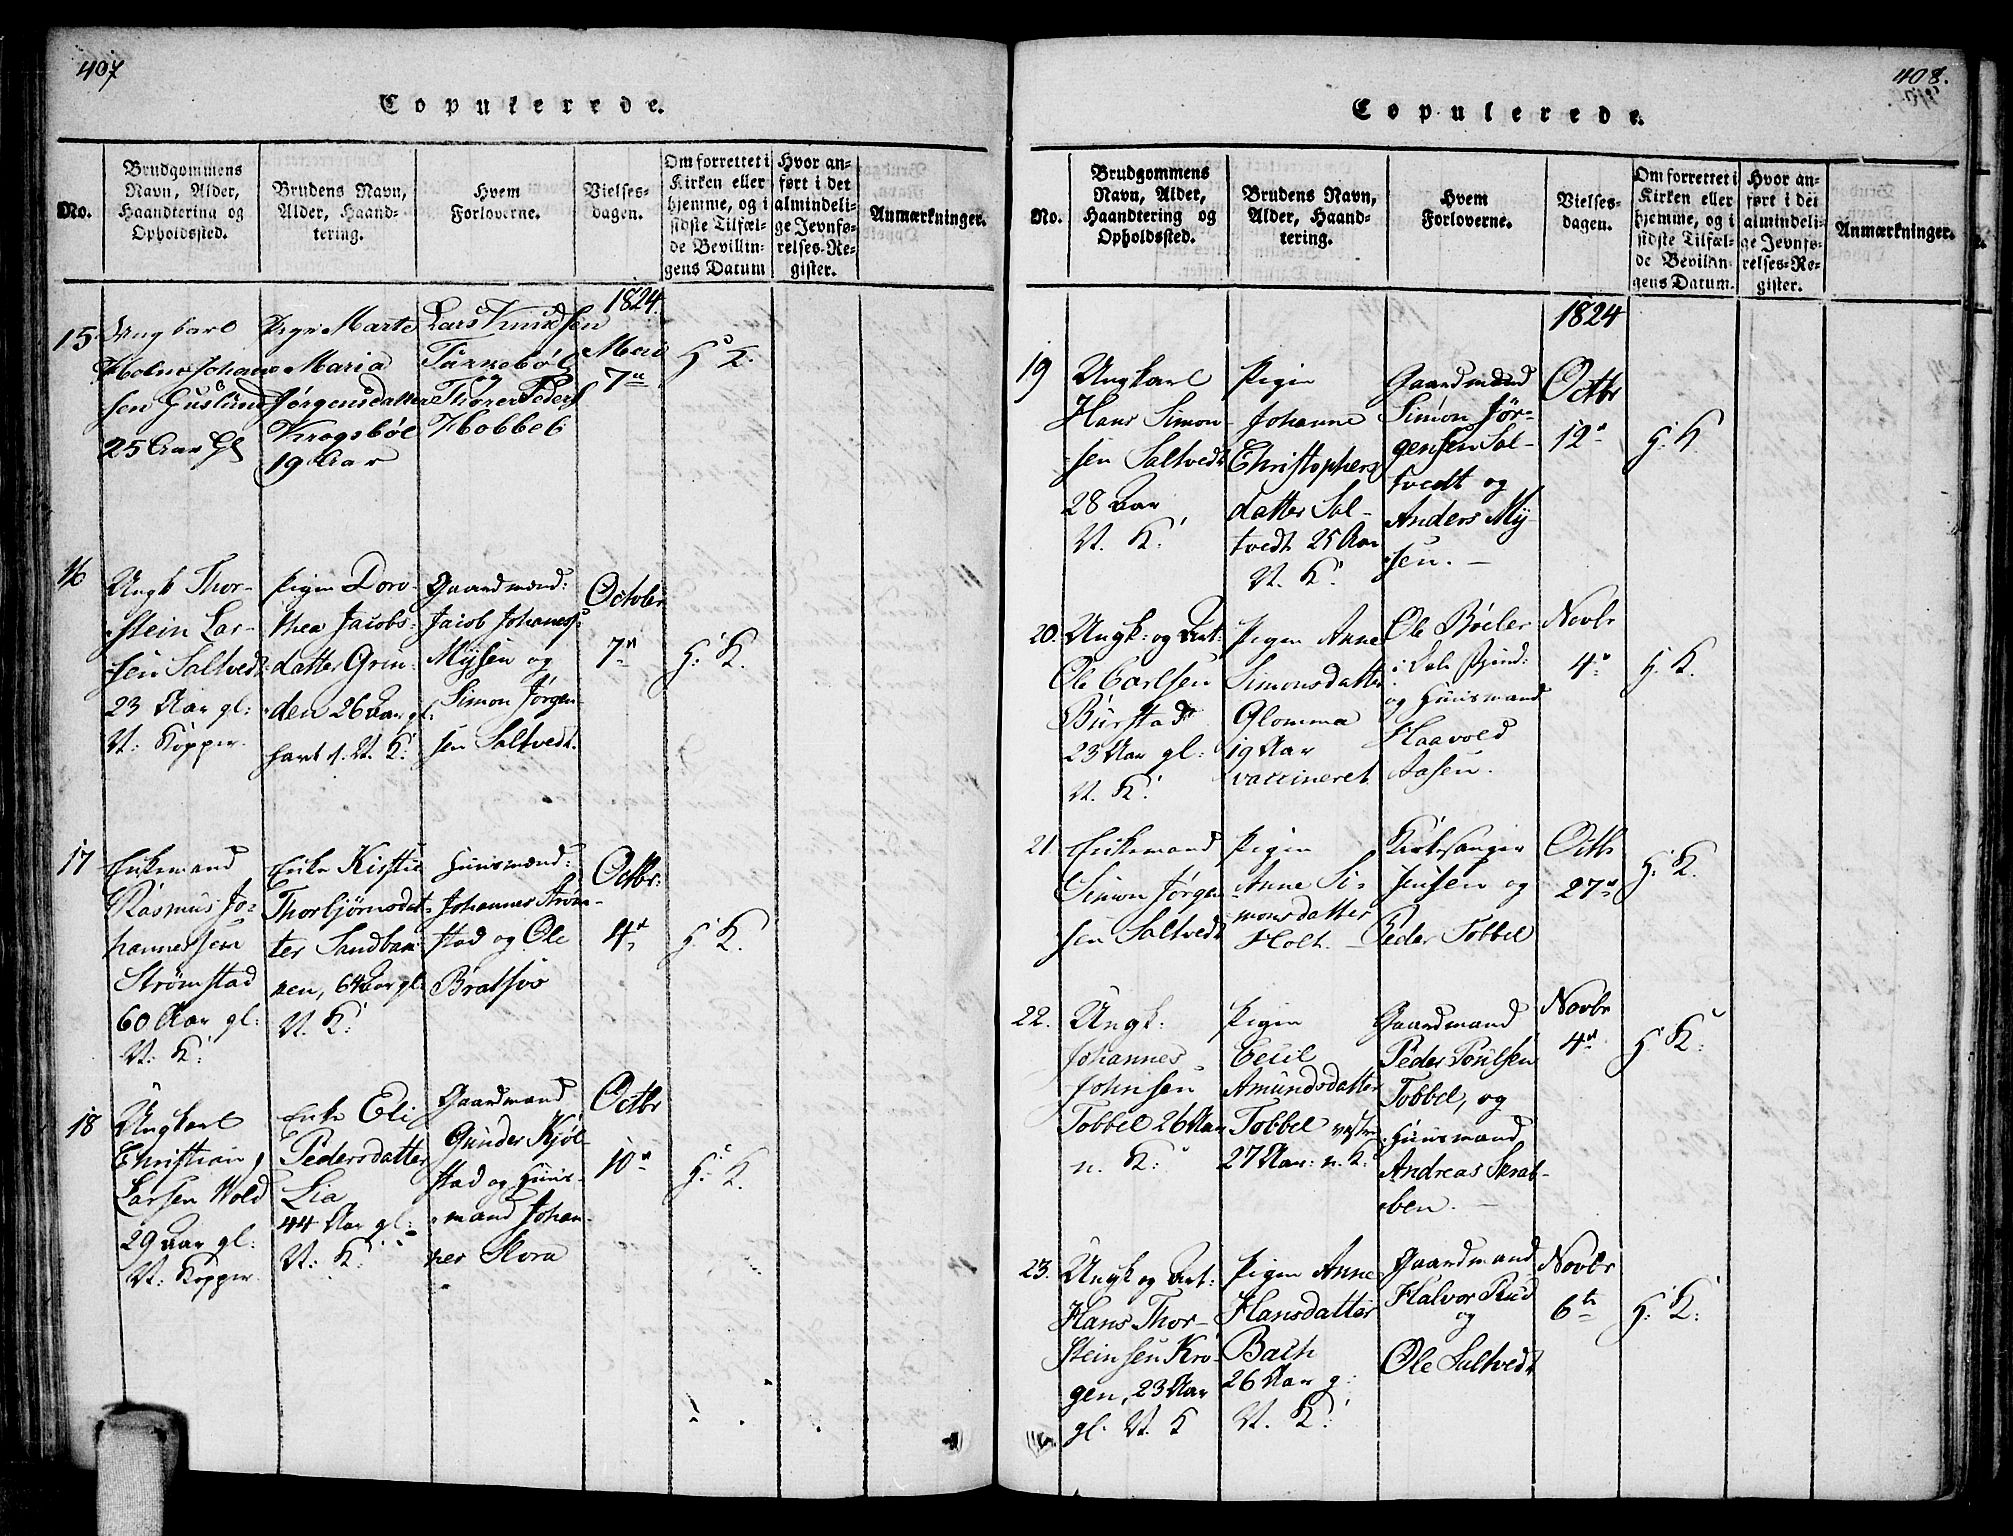 407
Copulerede.
No.
Brudgommens
Navn, Alder,
Haandtering og
Opholdssted.
Brudens Navn,
Alder, Haand-
tering.
Hvem
Forloverne.
Vielses-
dagen.
Om forrettet i
Kirken eller
hjemme, og i
sidste Tilfæl-
de Bevillin-
gens Datum
Hvor an-
ført i det
almindeli-
ge Jevnfø-
relses-Re-
gister.
Anmærkninger.
1824.
15
Ungkarl
Johan
sen
25 Aar gl
Pigen Marte
Maria
Jørgensdatter
Kragsbøl
19 Aar
Lars Knudsen
Thorer Peders
Hobbel
Maii
7de
H: K.
16
Ungk Thor-
stein Lar-
sen Saltvedt
23 Aar gl:
V: Kopper.
Pigen Doro-
thea Jacobs-
datter Grin-
den 26 Aar gl:
havt n. V. K:
Gaardmænd:
Jacob Johaness:
Mysen og
Simon Jørgen
sen Saltvedt.
October
7de
H: K.
17
Enkemand
Rasmus Jo-
hannessen
Strømstad
60 Aar gl:
V: K:
Enke Kirstie
Thorbjørnsdat-
ter Sandbak
ken, 64 Aar gl:
V. K:
Huusmænd:
Johannes Strøm-
stad og Ole
Bratfos
Octbr:
4de
H: K.
18
Ungkarl
Christian
Larsen Wold
29 Aar gl:
V: Kopper.
Enke Eli
Pedersdatter
Lia
44 Aar gl:
V: K:
Gaardmand
Gunder Kjøl-
stad og Huus-
mand Johan-
nes Slora
Octbr
10de
H: K.
408.
Copulerede.
No.
Brudgommens
Navn, Alder,
Haandtering og
Opholdssted.
Brudens Navn,
Alder, Haand-
tering.
Hvem
Forloverne.
Vielses-
dagen.
Om forrettet i
Kirken eller
hjemme, og i
sidste Tilfæl-
de Bevillin-
gens Datum.
Hvor an-
ført i det
almindeli-
ge Jevnfø-
relses-Re-
gister.
Anmærkninger.
1824
19
Ungkarl
Hans Simon-
sen Saltvedt
28 Aar
V. K:
Pigen
Johanne
Christophers
datter Sal-
tvedt 25 Aar
V. K:
Gaardmænd
Simon Jør-
gensen Sal-
tvedt og
Anders My
sen. —
Octbr
12te
H: K.
20.
Ungk: og Art:
Ole Carlsen
Burstad
23 Aar gl:
V. K:
Pigen Anne
Simonsdatter
Glomma
19 Aar
vaccineret
Ole Bøeler
og Huusmand
Haavold
Aasen.
Novbr
4de
H: K.
21
Enkemand
Simon Jørgen
sen Saltvedt
Pigen
Anne Si-
monsdatter
Holt. —
Kirkesanger
Jensen og
Peder Tobbel
Octb
27de
H: K.
22.
Ungk:
Johannes
Johnsen
Tobbel 26 Aar
n. K:
Pigen
Cecil
Amundsdatter
Tobbel vestre
27 Aar: n. K:
Gaardmand
Peder Poulsen
Tobbel, og
Huusmand
Andreas Skrab-
ben. —
Novbr
4de
H: K:
23.
Ungk og Art:
Hans Thor-
steinsen Kro-
gen, 23 Aar
gl. V. K
Pigen Anne
Hansdatter
Bach
26 Aar g:
V. K:
Gaardmand
Halvor Rud
og
Ole Saltvedt
Novbr
6te
H: K: